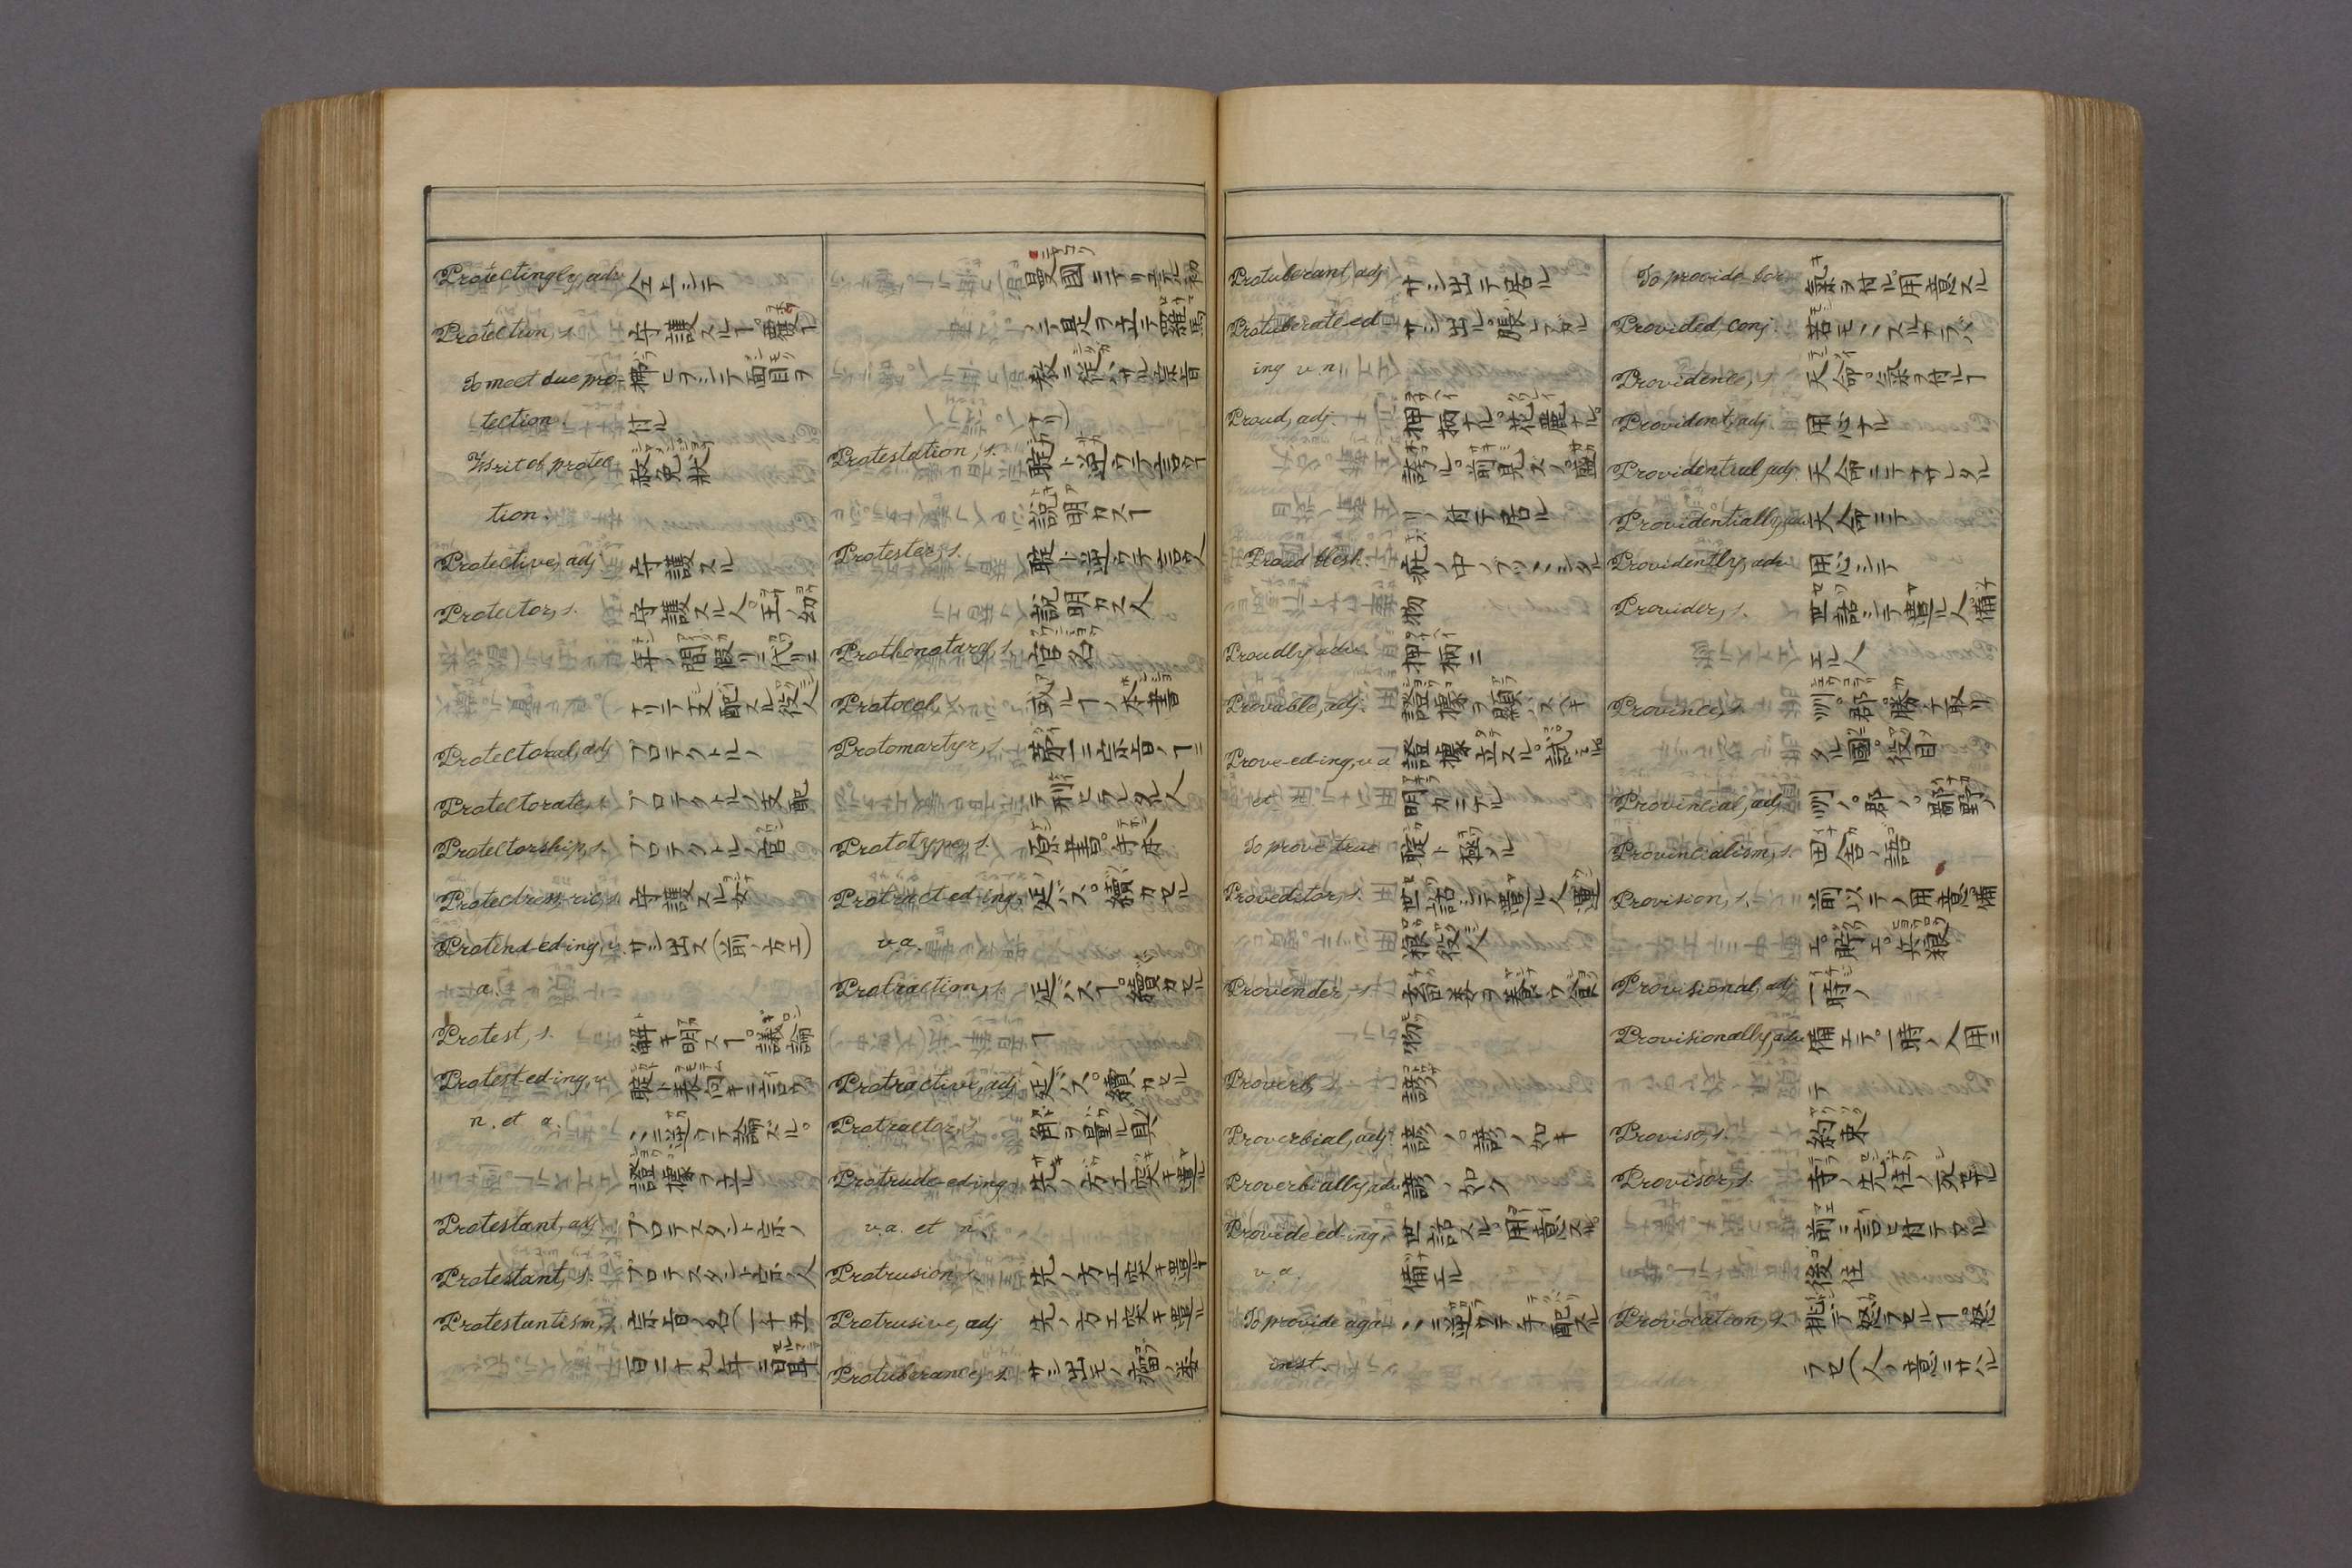 Protectingly, adv. 仝上シテ
Protection, s. 守護スルヿ。覆ヿ
To meet due pro-
tection. 付ル
Writ of protec- 赦免状
tion.
Protective, adj 守護スル
Protector, s. 守護スル人。王ノ幼
年ノ間假リニ代リニ
ナリテ支配スル役人
Protectoral, adj プロテクトル ノ
Protectorate, s. プロテクトル ノ支配
Protectorship, s. プロテクトル ノ官
Protectress-rice, s. 守護スル女
Protend-ed-ing, v. サシ出ス(前ノ方エ)
a.
Protest, s. 解キ明スヿ。議論
Protest-ed-ing, v.
n. et a. ニ逆ツテ論ズル。
證據ヲ立ル
Protestant, adj プロテスタント宗ノ
Protestant, s. プロテスタント宗ノ人
Protestantism, s. 宗旨ノ名(一千五
百二十九年ニ
ニ是ヲ立テ羅馬
教ニ從ハザル宗旨
ナリ)
Protestation, s. 聢ト逆ツテ言フヿ
説明カスヿ
Protester, s. 聢ト逆ツテ言フ人
説明カス人
Prothonotary, s. 官名
Protocol.
Protomartyr, s. 第一ニ宗旨ノヿニ
テ刑セラレタル人
Prototype, s. 原書。手本
Protract-ed-ing, 延バス。續カセル
v.a.
Protraction, s. 延バスヿ。續カセル
ヿ
Protractive, adj 延バス。續カセル
Protractor, s. 角ヲ量ル具
Protrude-ed-ing, 先ノ方エ突キ遣ル
v.a. et n.
Protrusion, s. 先ノ方エ突キ遣ルヿ
Protrusive, adj 先ノ方エ突キ遣ル
Protuberance, s. サシ出モノ。瘤
Protuberant, adj サシ出テ居ル
Protuberate-ed- サシ出ル。脹レアガル
ing v n
Proud, adj.
誇ル。
付テ居ル
Proud flesh.
物
Proudly, adv. 押柄ニ
Provable, adj. 證據ヲ顯ハスベキ
Prove-ed-ing, v a 證據立スル。試ミル
et n 明カニナル
To prove true 聢ト極ル
Proveditor, s. 世話シテ遣ル人。運
粮役人
Provender, s.
物
Proverb, s. 諺
Proverbial, adj. 諺ノ。諺ノ如キ
Proverbially, adv 諺ノ如ク
Provide-ed-ing, 世話スル。用意スル。
v.a. 備エル
To provide aga- ニ逆ツテ手配スル
inst.
To provide for 氣ヲ付ル。用意スル
Provided, conj. 若モスルナラバ
Providence, s. 天命。氣ヲ付ルヿ
Provident, adj. 用心ナル
Providential, adj. 天命ニテナサレタル
Providentially, adv 天命ニテ
Providently, adv 用心シテ
Provider, s. 世話シテ遣ル人。備
エル人
Province, s. 州。郡。勝テ取リ
タル國。役目
Provincial, adj 州ノ。郡ノ。鄙野ノ
Provincialism, s. 田舎ノ語
Provision, s. 前以テノ用意。備
エ。
Provisional, adj 一時ノ
Provisionally, adv 備エテ。一時ノ入用ニ
テ
Proviso, s. 約束
Provisor, s. 寺ノ先住ノ死ヌル
前ニ言ヒ付テアル
後住
Provocation, s. 挑テ怒ラセルヿ。怒
ラセ(人ノ意ニサハル